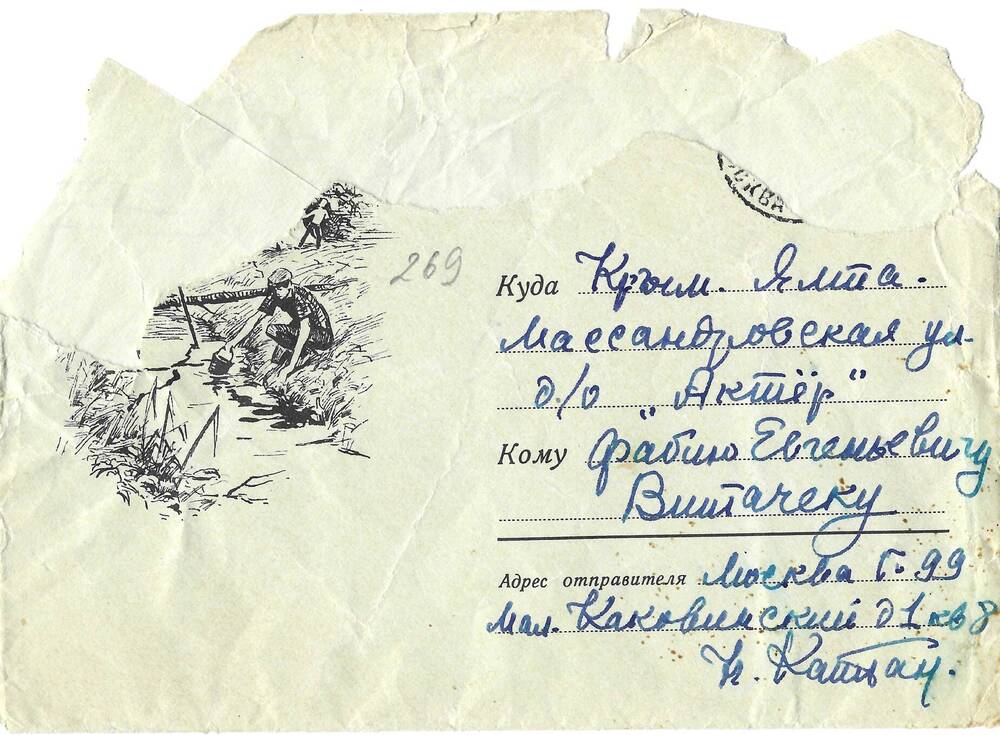 СКВА
269
Куда Крым. Ялта.
Массандровская ул.
д/о "Актёр"
Кому Фабию Евгеньевичу
Витачеку
Адрес отправителя Москва Г-99
Мал. Каковинский д 1 кв 8
Катван.